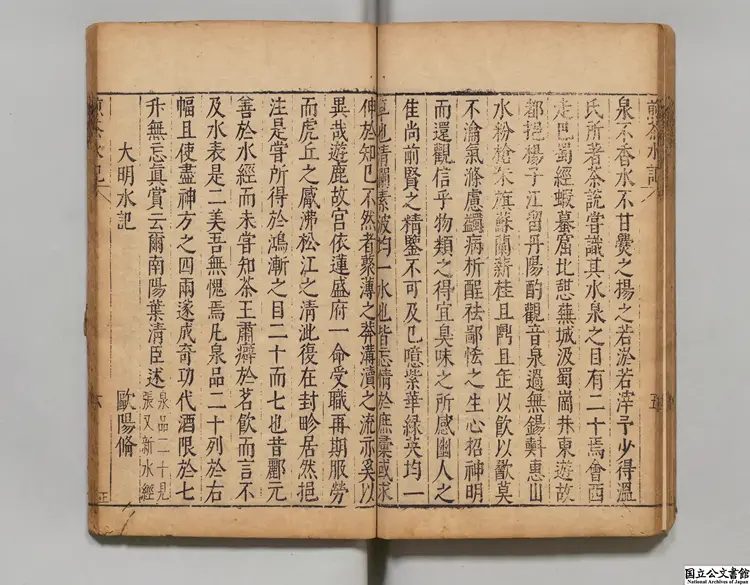 煎茶水記
五
泉不香水不甘爨之揚之若淤若滓予少得溫
氏所著茶說嘗識其水泉之目有二十焉會西
走巴蜀經蝦蟇窟北憩蕪城汲蜀崗井東遊故
都挹楊子江留丹陽酌觀音泉過無錫㪺惠山
水粉槍朱旗蘇蘭薪桂且鬲且缶以飲以歠莫
不瀹氣滌慮蠲病析酲祛鄙恡之生心招神明
而還觀信乎物類之得宜臭味之所感幽人之
佳尚前賢之精鑒不可及已噫紫華綠英均一
草也清瀾素波均一水也皆忘情於庶彙或求
伸於知巳不然者藂薄之莽溝瀆之流亦奚以
異哉遊鹿故宮依蓮盛府一命受職再期服勞
而虎丘之觱沸松江之清泚復在封畛居然挹
注是嘗所得於鴻漸之目二十而七也昔酈元
善於水經而未嘗知茶王肅癖於茗飲而言不
及水表是二美吾無愧焉凡泉品二十列於右
幅且使盡神方之四兩遂成奇功代酒限於七
升無忘真賞云爾南陽葉清臣述 泉品二十見
張又新水經
大明水記 歐陽脩
煎茶水記
六
正
国立公文書館
National Archives of Japan